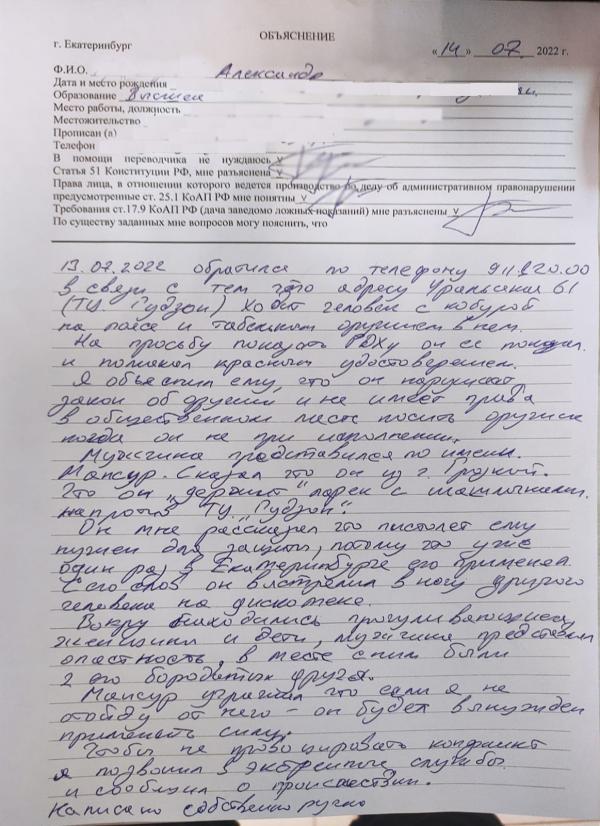 ОБЪЯСНЕНИЕ
г. Екатеринбург «14» 07. 2022 г.
Ф.И.О. Александр
Дата и место рождения
Образование Высшее
Место работы, должность
Местожительство
Прописан (а)
Телефон
В помощи переводчика не нуждаюсь v
Статья 51 Конституции РФ, мне разъяснена v
Права лица, в отношении которого ведется производство по делу об административном правонарушении
предусмотренные ст. 25.1 КоАП РФ мне понятны v
Требования ст.17.9 КоАП РФ (дача заведомо ложных показаний) мне разъяснены v
По существу заданных мне вопросов могу пояснить, что
13.07.2022 обратился по телефону
в связи с тем что адресу Уральская 61
(ТЦ. Гудзон) Ходит человек с кобурой
на поясе и табельным оружием в нем.
На просьбу показать РОХу он ее показал.
и помахал красным удостоверением.
Я объяснил ему, что он нарушает
закон об оружии и не имеет права
в общественном месте носить оружие
когда он не при исполнении.
Мужчина представился по имени.
Мансур. Сказал что он из г. Грозной.
Что он "держит" ларек с шашлыками.
напротив ТЦ "Гудзон".
Он мне рассказал что пистолет ему
нужен для защиты, потому что уже
один раз в Екатеринбурге его применял.
С его слов он выстрелил в ногу другого
человека на дискотеке.
Вокруг находились прогуливающиеся
женщины и дети, мужчина представлял
опастность, в месте с ним были
2 его бородатых друга.
Мансур угрожал что если я не
отойду от него - он будет вынужден
применить силу.
Чтобы не провоцировать конфликт
я позвонил в экстренные службы
и сообщил о происшествии.
Написано собственно ручно